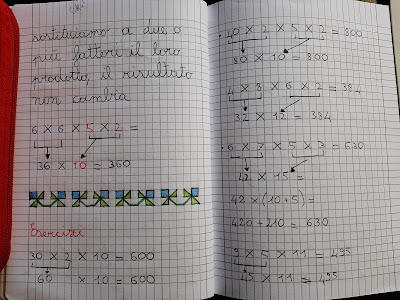 sostituiamo a due o
più fattori il loro
prodotto, il risultato
non cambia
6 × 6 × 5 × 2 =
36 × 10 = 360
Esercizi
30 × 2 × 10 = 600
60 × 10 = 600
40 × 2 × 5 × 2 = 800
80 × 10 = 800
4 × 8 × 6 × 2 = 384
32 × 12 = 384
6 × 7 × 5 × 3 = 630
42 × 15 =
42 × (10+5) =
420 + 210 = 630
9 × 5 × 11 = 495
45 × 11 = 495